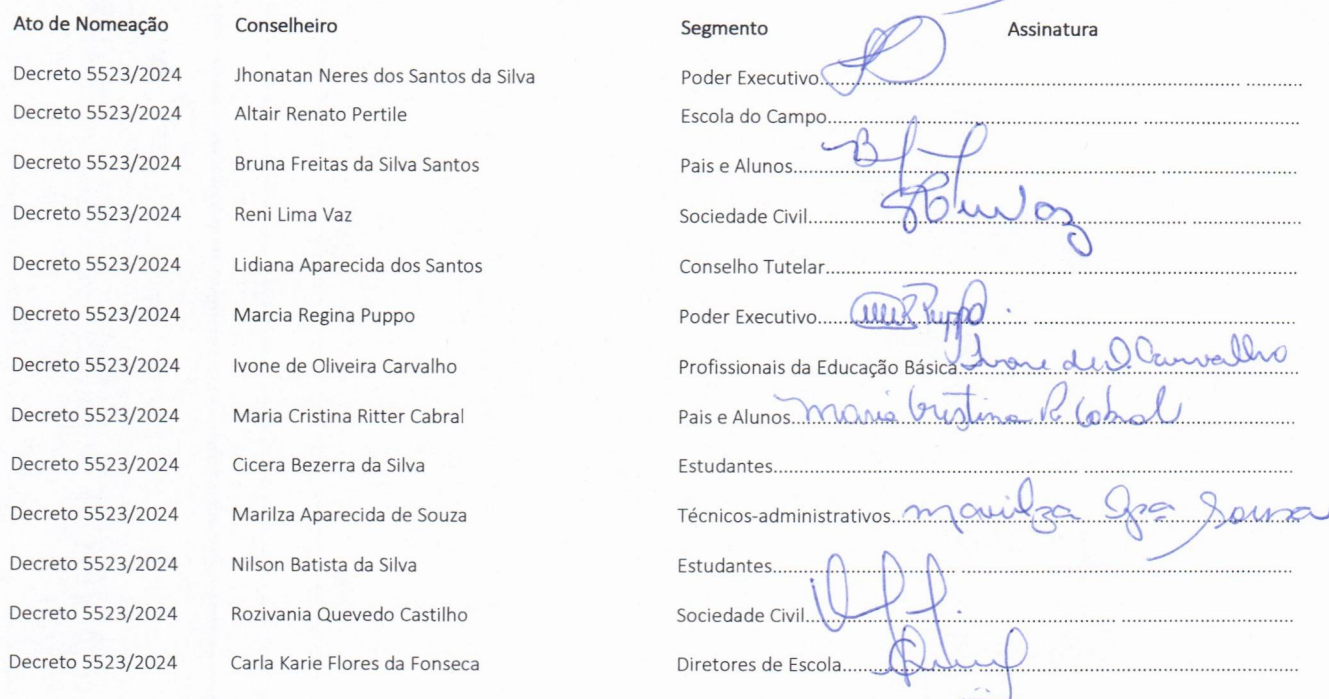 Ato de Nomeação Conselheiro Segmento Assinatura
Decreto 5523/2024 Jhonatan Neres dos Santos da Silva Poder Executivo
Decreto 5523/2024 Altair Renato Pertile Escola do Campo
Decreto 5523/2024 Bruna Freitas da Silva Santos Pais e Alunos
Decreto 5523/2024 Reni Lima Vaz Sociedade Civil
Decreto 5523/2024 Lidiana Aparecida dos Santos Conselho Tutelar
Decreto 5523/2024 Marcia Regina Puppo Poder Executivo Puppo
Decreto 5523/2024 Ivone de Oliveira Carvalho Profissionais da Educação Básica Ivone de O. Carvalho
Decreto 5523/2024 Maria Cristina Ritter Cabral Pais e Alunos Maria Cristina R. Cabral
Decreto 5523/2024 Cicera Bezerra da Silva Estudantes
Decreto 5523/2024 Marilza Aparecida de Souza Técnicos-administrativos Marilza Apª Souza
Decreto 5523/2024 Nilson Batista da Silva Estudantes
Decreto 5523/2024 Rozivania Quevedo Castilho Sociedade Civil
Decreto 5523/2024 Carla Karie Flores da Fonseca Diretores de Escola